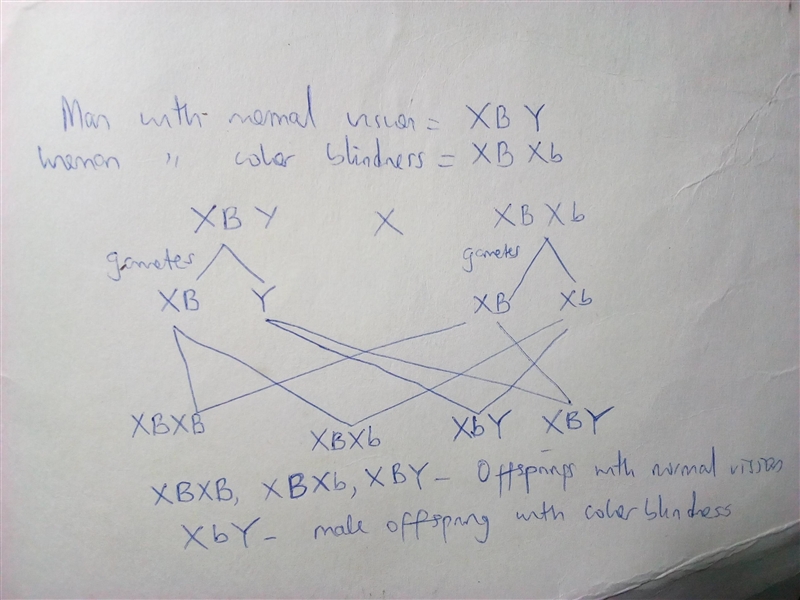 Man with normal vision = XB Y
woman " color blindness = XB Xb
XB Y X XB Xb
gametes gametes
XB Y XB Xb
XBXB XBXb XbY XBY
XBXB, XBXb, XBY - Offsprings with normal vision
XbY - male offspring with color blindness